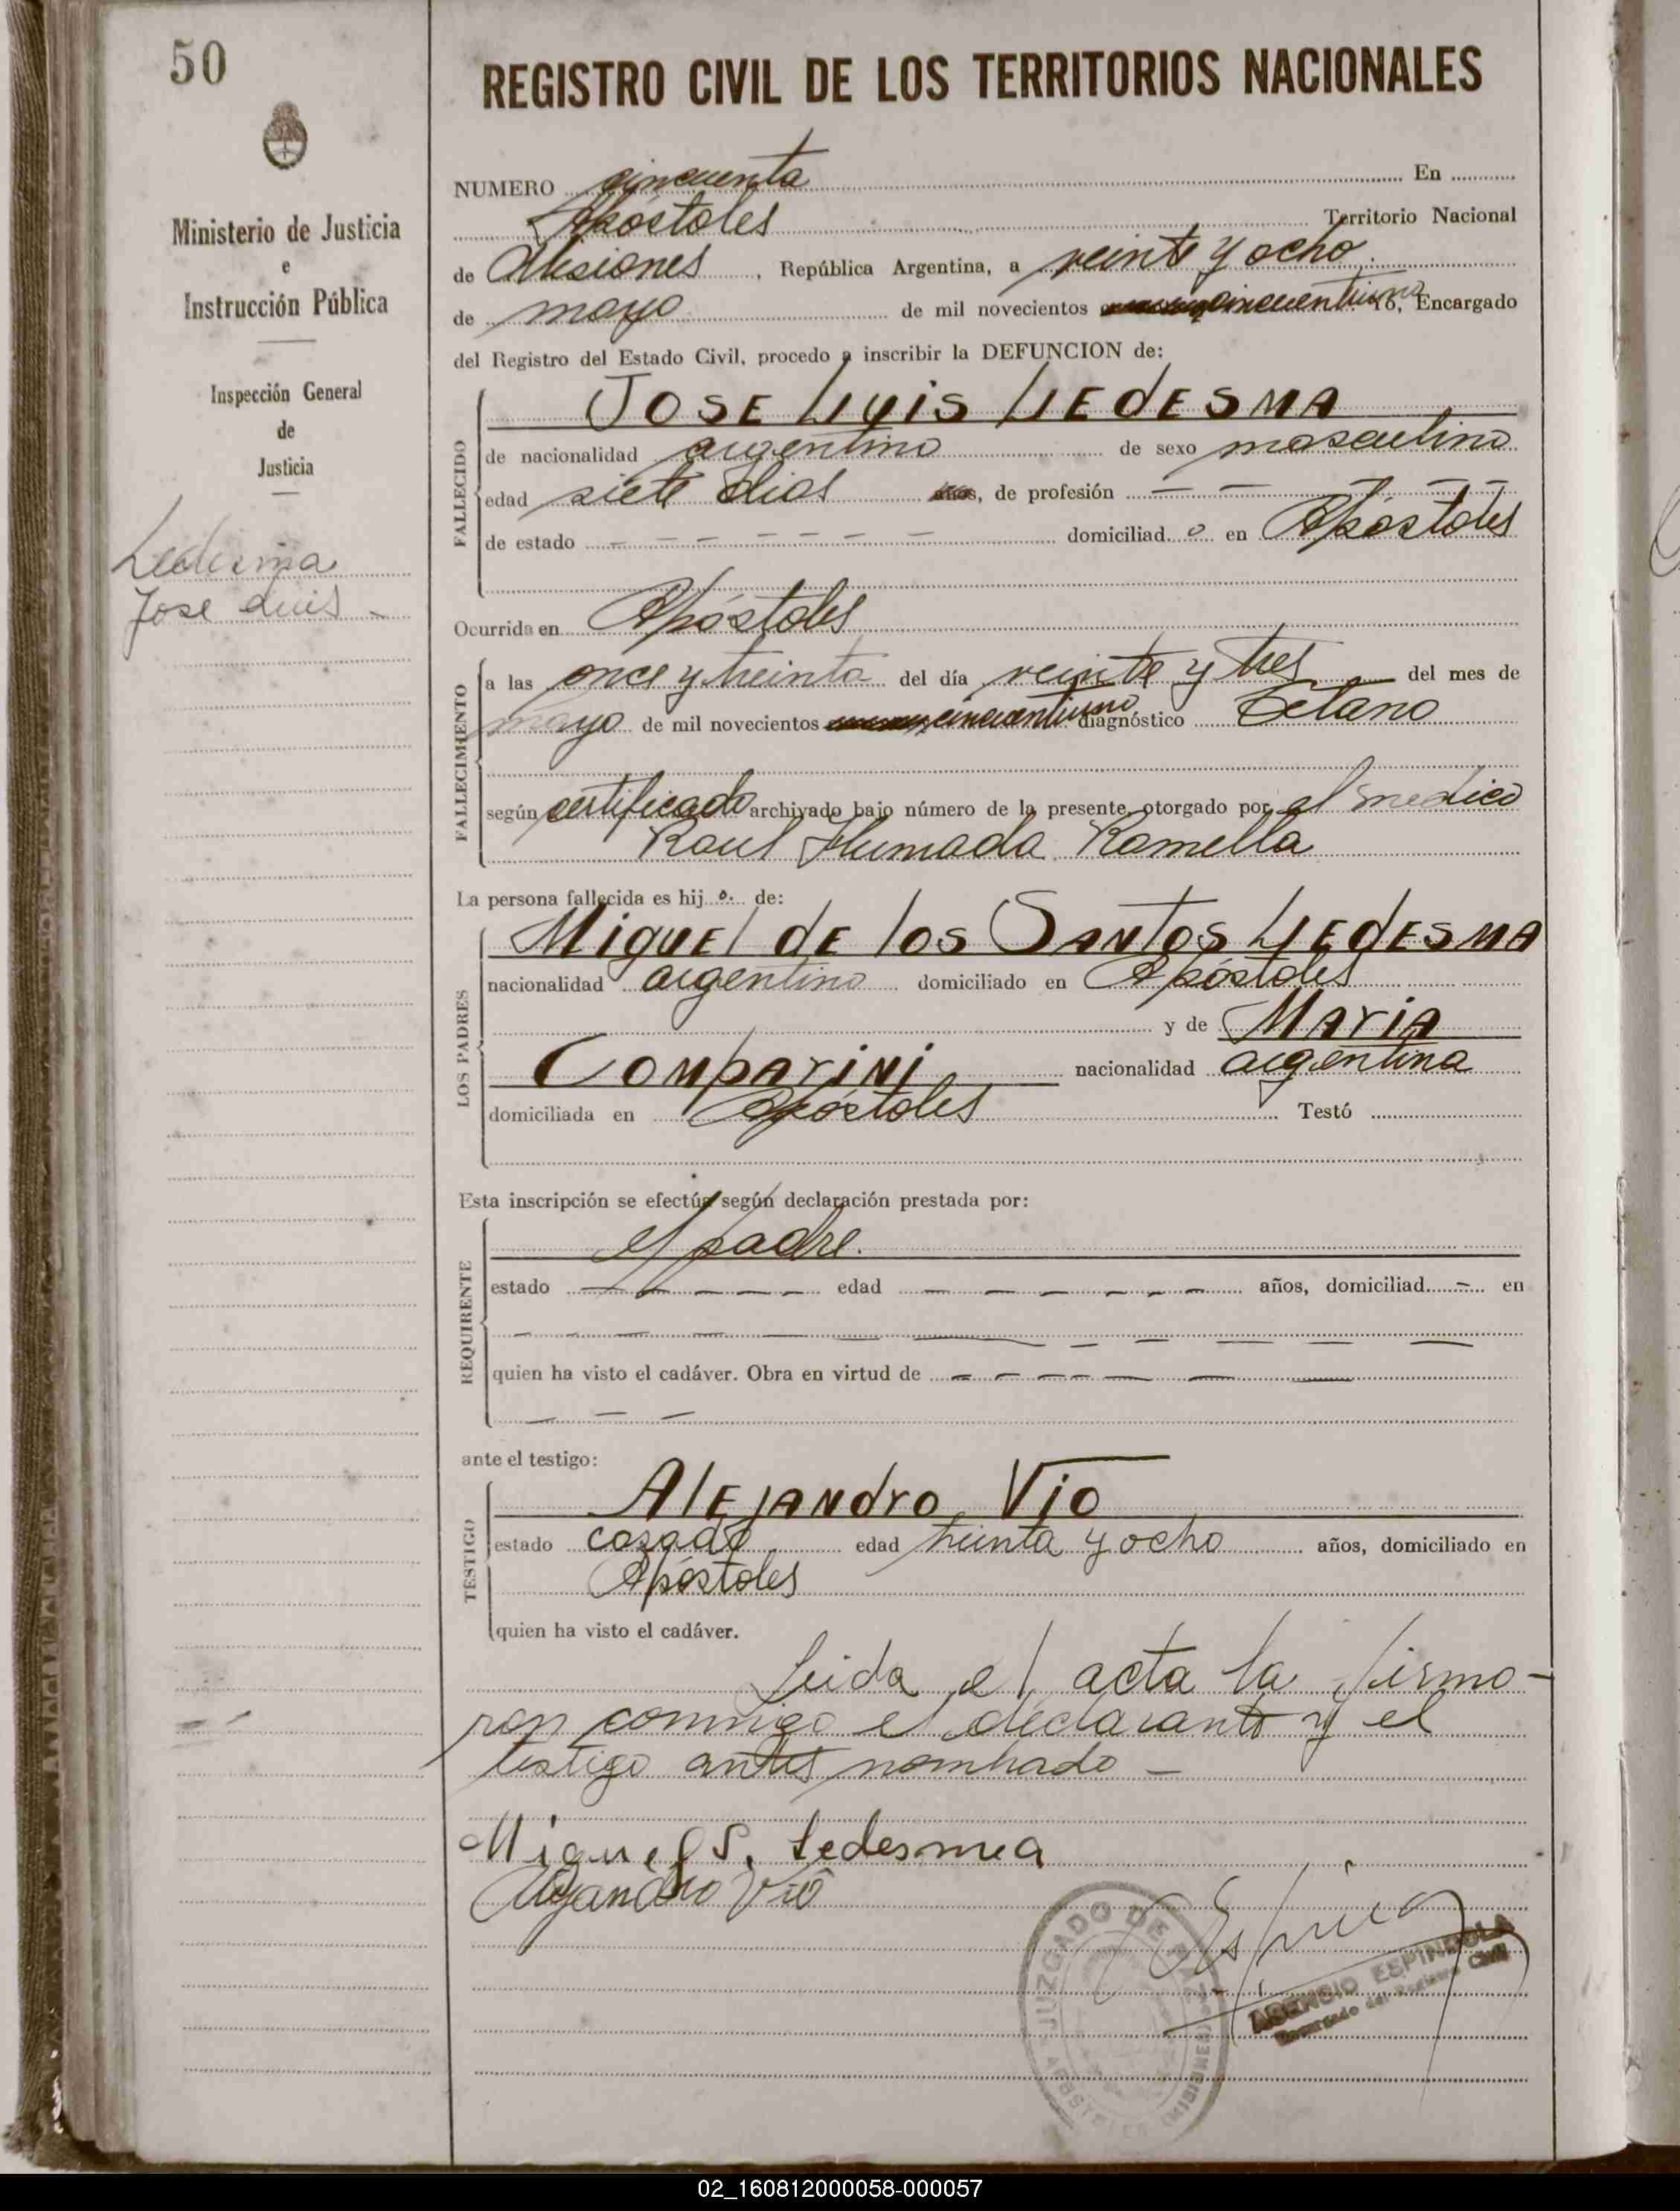 50
REGISTRO CIVIL DE LOS TERRITORIOS NACIONALES
Ministerio de Justicia
e
Instrucción Pública
Inspección General
de
Justicia
Ledesma
Jose Luis -
NUMERO cincuenta En
Apóstoles Territorio Nacional
de Misiones, República Argentina, a veinte y ocho
de mayo de mil novecientos cincuentiuno Yo, Encargado
del Registro del Estado Civil, procedo a inscribir la DEFUNCION de:
FALLECIDO
JOSE LUIS LEDESMA
de nacionalidad argentino de sexo masculino
edad siete dias años, de profesión — —
de estado — — — — — — domiciliad o en Apóstoles
Ocurrida en Apóstoles
FALLECIMIENTO
a las once y treinta del día veinte y tres del mes de
mayo de mil novecientos cincuentiuno diagnóstico Tétano
según certificado archivado bajo número de la presente otorgado por el medico
Raul Humada Ramella
La persona fallecida es hij o de:
LOS PADRES
MIGUEL DE LOS SANTOS LEDESMA
nacionalidad argentino domiciliado en Apóstoles
y de MARIA
COMPARINI nacionalidad argentina
domiciliada en Apóstoles Testó
Esta inscripción se efectúa según declaración prestada por:
REQUIRENTE
el padre.
estado — — — — — edad — — — — — — años, domiciliad — en
quien ha visto el cadáver. Obra en virtud de — — — — — — —
ante el testigo:
TESTIGO
ALEJANDRO VIO
estado casado edad treinta y ocho años, domiciliado en
Apóstoles
quien ha visto el cadáver.
Leida el acta la firma-
ron conmigo el declarante y el
testigo antes nombrado —
Miguel S. Ledesmea
Alejandro Vio
JUZGADO DE PAZ
APOSTOLES (MISIONES)
ASENSIO ESPINDOLA
Encargado del Registro Civil
02_160812000058-000057